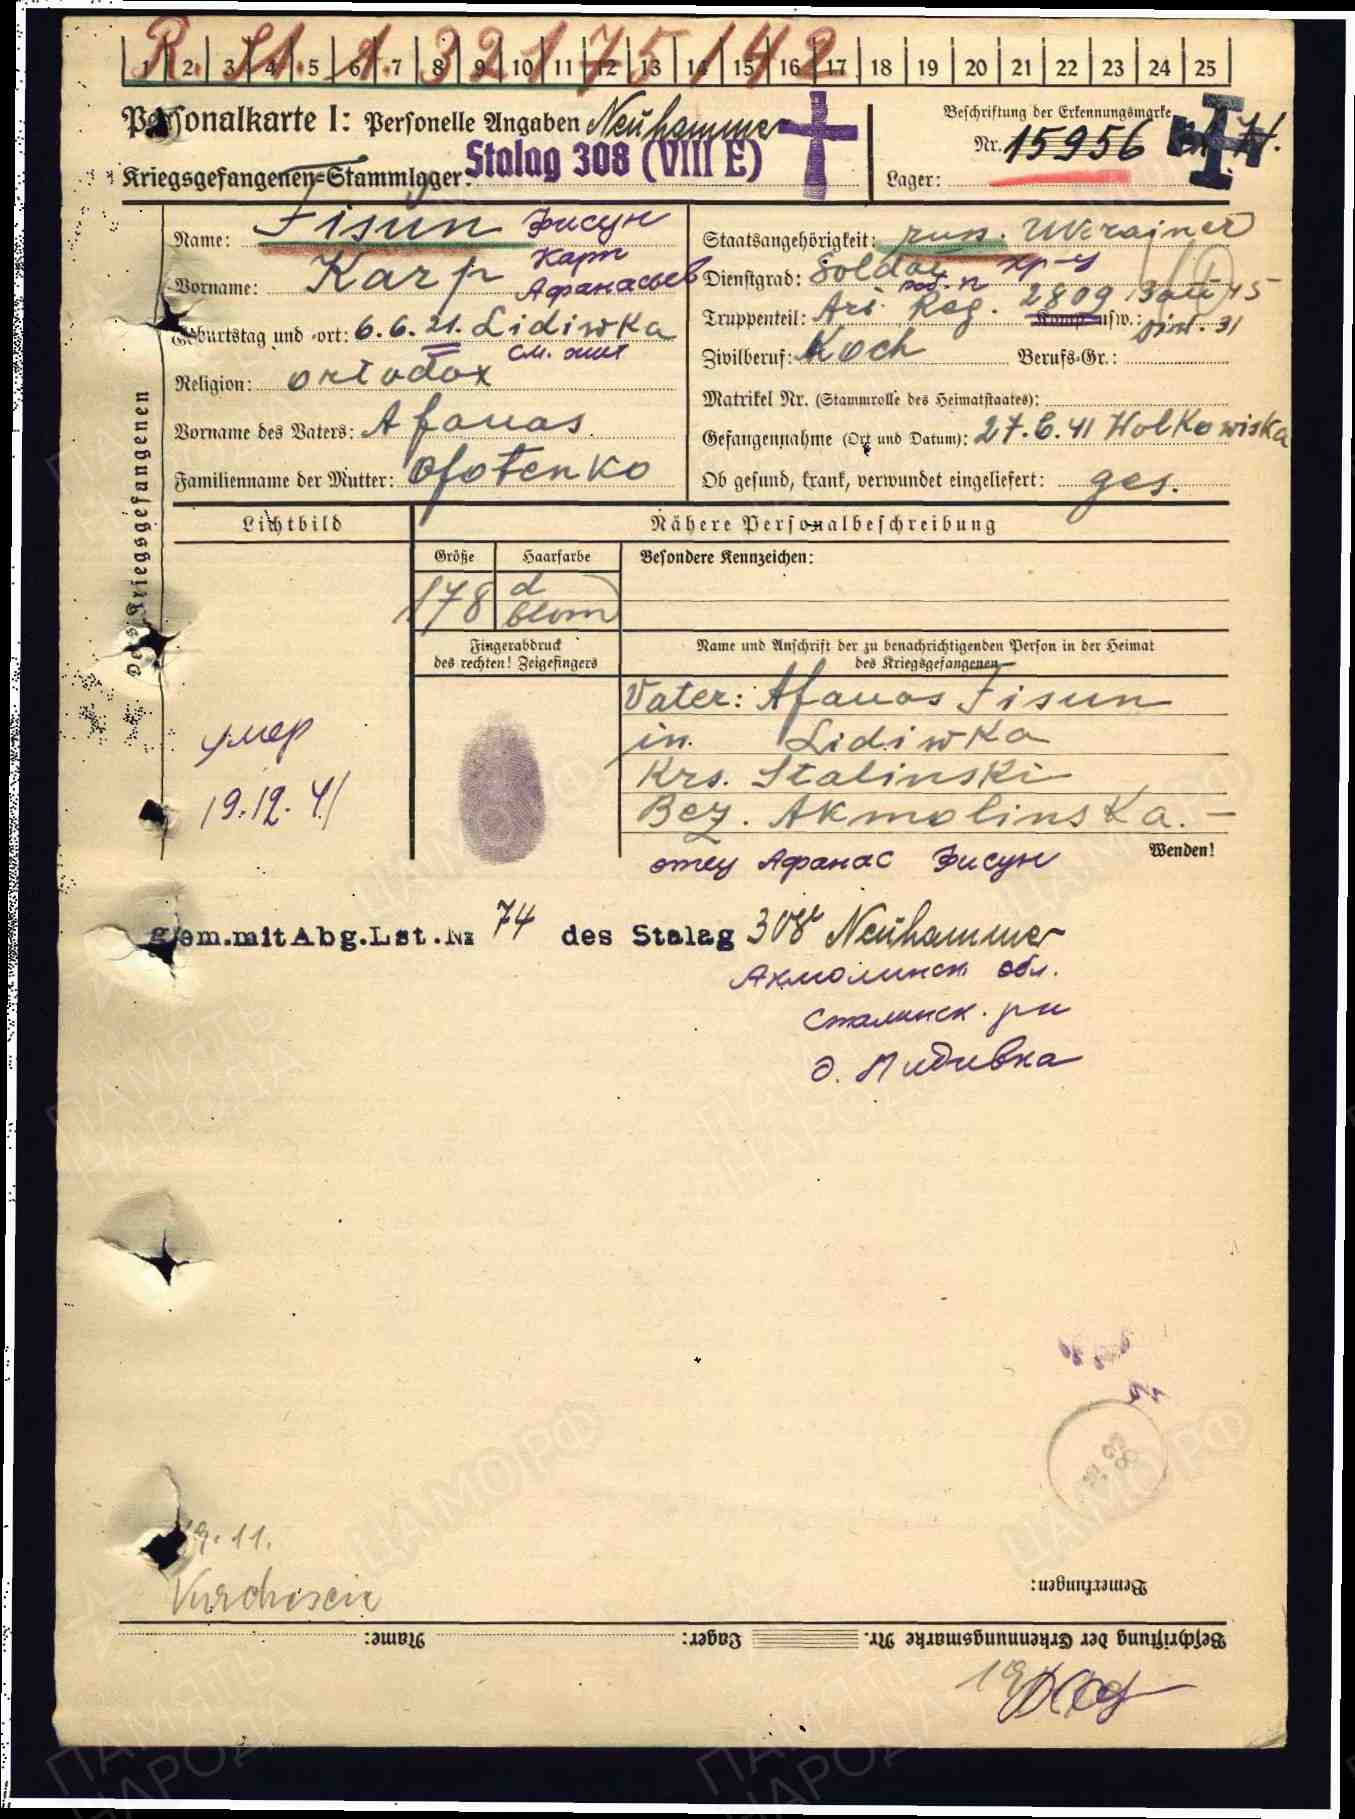 1 2 3 4 5 6 7 8 9 10 11 12 13 14 15 16 17 18 19 20 21 22 23 24 25
Personalkarte I: Personelle Angaben Neuhammer
Kriegsgefangenen-Stammlager: Stalag 308 (VIII E)
Beschriftung der Erkennungsmarke
Nr. 15956
Lager:
Des Kriegsgefangenen
Name: Fisun Фисун
Vorname: Karp Карп
Афанасьев
Geburtstag und -ort: 6.6.21. Lidiwka
Religion: ortodox
Vorname des Vaters: Afanas
Familienname der Mutter: Ofotenko
Staatsangehörigkeit: russ. Ukrainer
Dienstgrad: Soldat кр-ц
Truppenteil: Art. Reg. 2809 Komp. usw.:
Zivilberuf: Koch Berufs-Gr.:
Matrikel Nr. (Stammrolle des Heimatstaates):
Gefangennahme (Ort und Datum): 27.6.41 Wolkowiska
Ob gesund, krank, verwundet eingeliefert: ges.
Lichtbild
Nähere Personalbeschreibung
Größe Haarfarbe Besondere Kennzeichen:
178 d
blond
Fingerabdruck
des rechten! Zeigefingers
Name und Anschrift der zu benachrichtigenden Person in der Heimat
des Kriegsgefangenen
Vater: Afanas Fisun
in Lidiwka
Krs. Stalinski
Bez. Akmolinska. –
умер
19.12.41
Wenden!
отец Афанас Фисун
gem.mit Abg.Lst.Nr 74 des Stalag 308 Neuhammer
Акмолинск обл.
Сталинск. рн
д. Лидивка
19.11.
Bemerkungen:
Beschriftung der Erkennungsmarke Nr. Lager: Name:
ПАМЯТЬ НАРОДА
ЦАМО.РФ